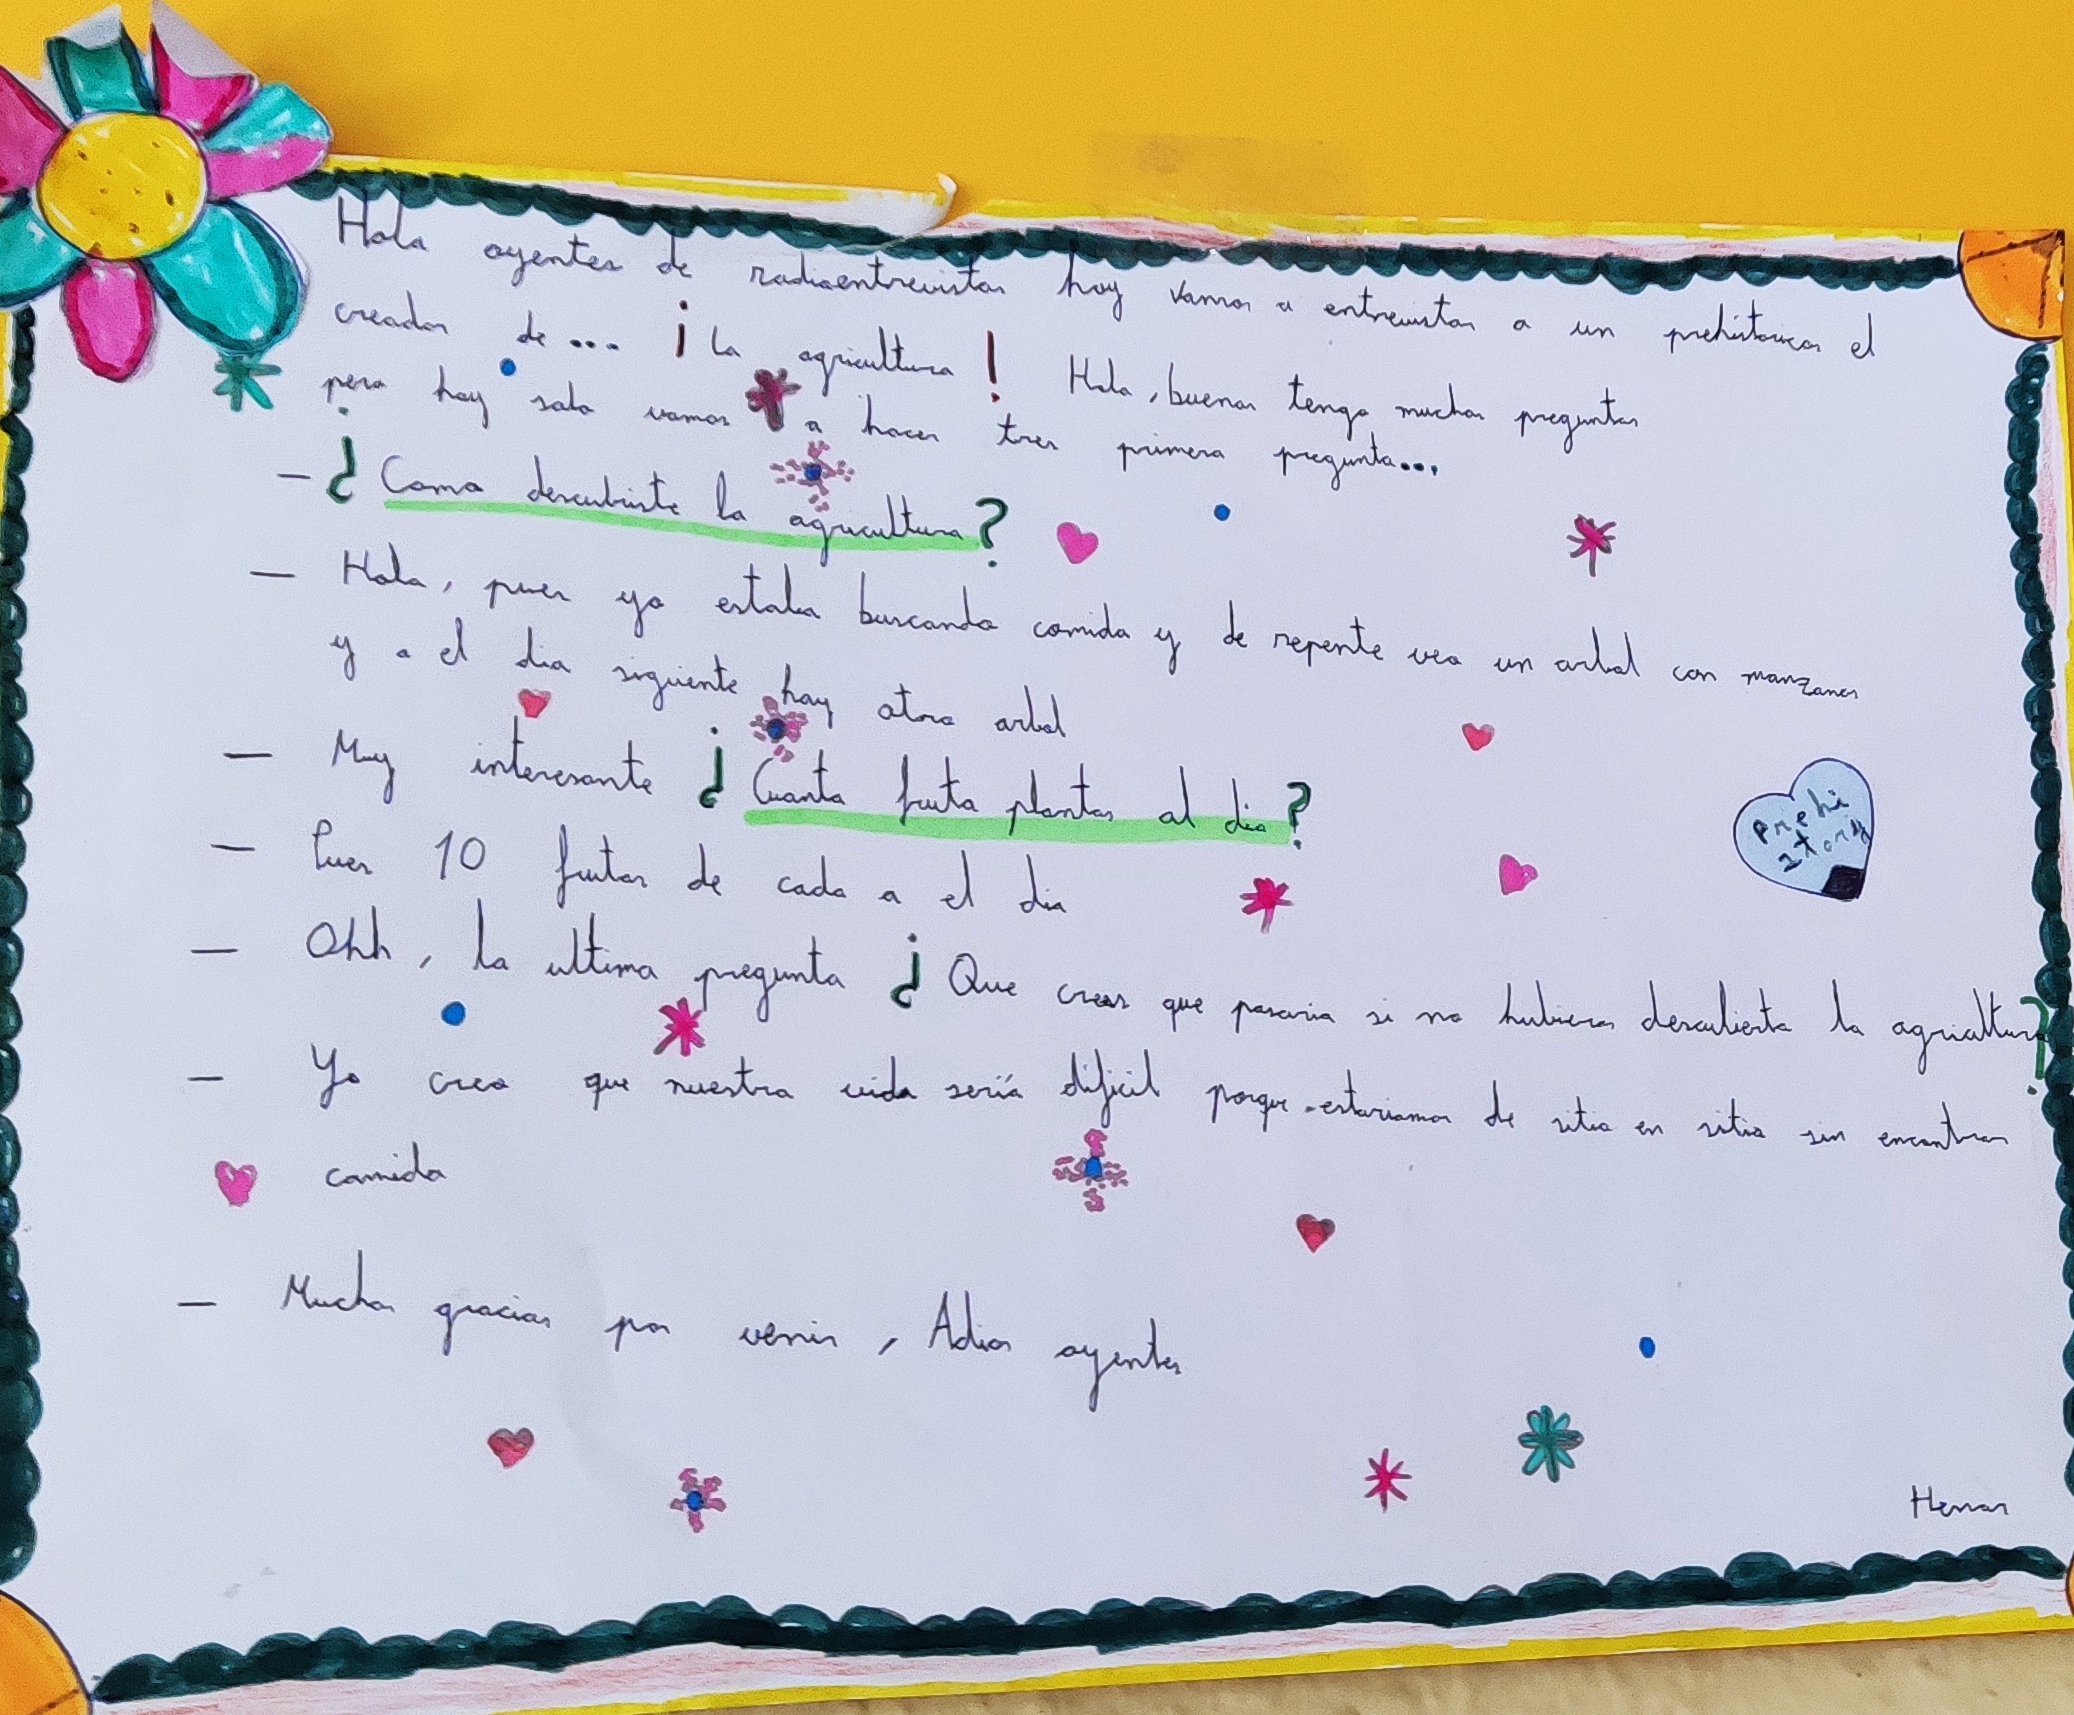 Hola oyentes de radioentrevistas hoy vamos a entrevistar a un prehistorico el
creador de... ¡La agricultura! Hola, buenas tengo muchas preguntas
pero hoy solo vamos a hacer tres primera pregunta...
- ¿Como descubriste la agricultura?
- Hola, pues yo estaba buscando comida y de repente veo un arbol con manzanas
y a el dia siguiente hay otro arbol
- Muy interesante ¿Cuanta fruta plantas al dia?
- Pues 10 frutas de cada a el dia
prehi
stori
- Ohh, la ultima pregunta ¿Que crees que pasaria si no hubieras descubierto la agricultura?
- Yo creo que nuestra vida sería dificil porque estariamos de sitio en sitio sin encontrar
comida
- Muchas gracias por venir, Adios oyentes